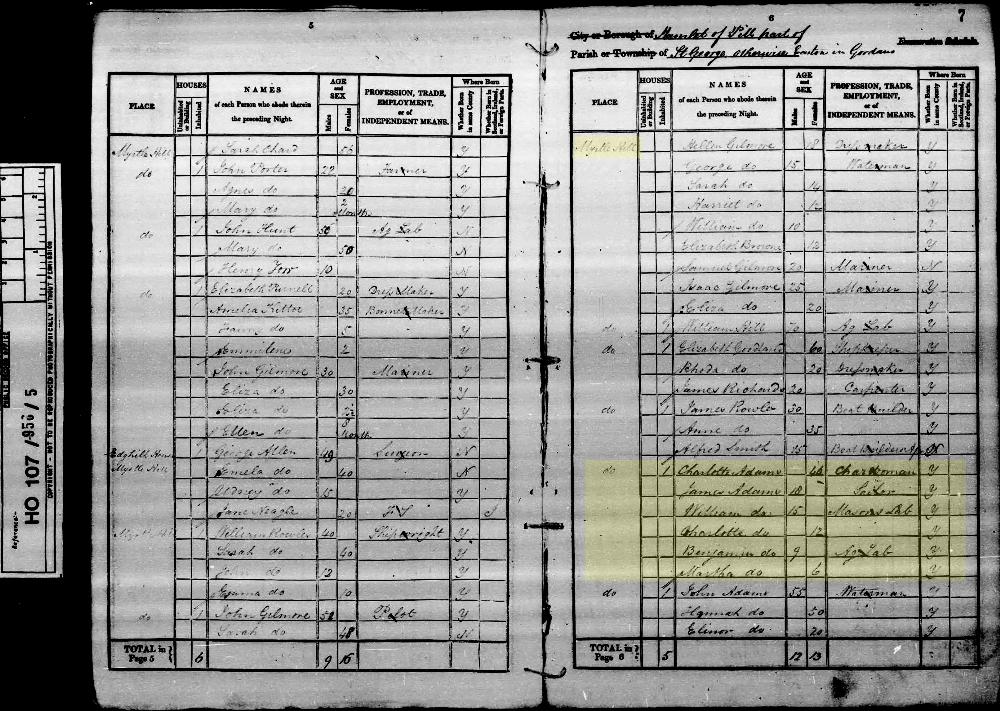 5
6
7
City or Borough of Hamlet of Pill part of
Parish or Township of St George otherwise Easton in Gordano
Enumeration Schedule.
PLACE
HOUSES
Uninhabited or Building
Inhabited
NAMES
of each Person who abode therein
the preceding Night.
AGE
and
SEX
Males
Females
PROFESSION, TRADE,
EMPLOYMENT,
or of
INDEPENDENT MEANS.
Where Born
Whether Born in same County
Whether Born in Scotland, Ireland, or Foreign Parts.
Myrtle Hill Sarah Chard 56 Y
do 1 John Porter 22 Farmer Y
Agnes do 20 Y
Mary do 2 Months Y
do 1 John Hunt 50 Ag Lab N
Mary do 50 N
Henry 10 N
do 1 Elizabeth Purnell 20 Dress Maker Y
Amelia 35 Bonnet Maker Y
do 5 Y
Emmilene 2 Y
John Gilmore 30 Mariner Y
Eliza do 30 Y
Eliza do Y
Ellen do 8 Months Y
Myrtle Hill 1 George Allen 49 Surgeon N
do 40 N
do 15 Y
Jane 20 F S
1 William Rowles 40 Shipwright Y
Sarah do 40 Y
John do 12 Y
do 10 Y
do 1 John Gilmore 52 Pilot Y
Sarah do 48
TOTAL in Page 5 6 9 16
PLACE
HOUSES
Uninhabited or Building
Inhabited
NAMES
of each Person who abode therein
the preceding Night.
AGE
and
SEX
Males
Females
PROFESSION, TRADE,
EMPLOYMENT,
or of
INDEPENDENT MEANS.
Where Born
Whether Born in same County
Whether Born in Scotland, Ireland, or Foreign Parts.
Myrtle Hill Hellen Gilmore 18 Dressmaker Y
George do 15 Waterman Y
Sarah do 14 Y
Harriet do 12 Y
William do 10 Y
Elizabeth Browne 12 Y
Samuel Gilmore 20 Mariner N
Isaac Gilmore 25 Mariner Y
Eliza do 20 Y
do 1 William Hill 70 Ag Lab Y
do 1 Elizabeth Goodland 60 Shopkeeper Y
Rhoda do 20 Dressmaker Y
James Richards 20 Carpenter Y
do 1 James Rowles 30 Boat Builder Y
Anne do 35 Y
Alfred Smith 15 Boat Builders Ap N
do 1 Charlotte Adams Charwoman Y
James Adams 18 Y
William do 15 Masons Lab Y
Charlotte do 12 Y
Benjamin do 9 Ag Lab Y
Martha do 6 Y
do 1 John Adams 55 Waterman
Hannah do 50 Y
Elinor do 20 Y
TOTAL in Page 6 5 12 13
Reference:-
HO 107 / 956 / 5